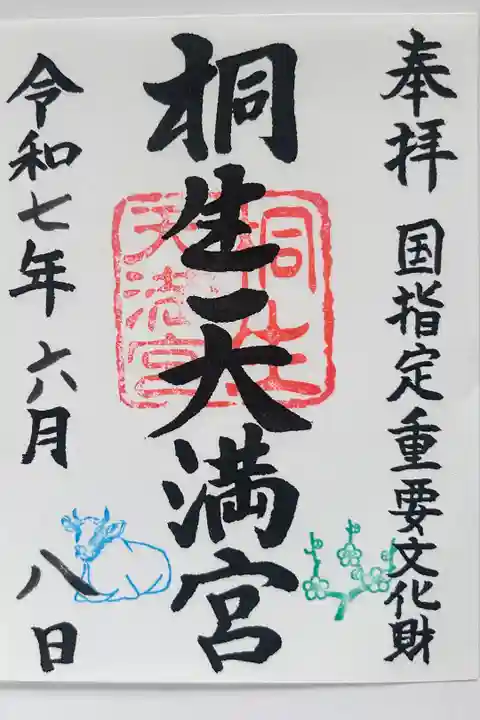 奉拝 国指定重要文化財
桐生天満宮
桐生
天満宮
令和七年六月八日